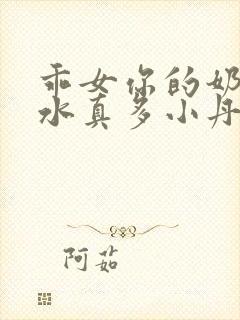 乖女你的奶
水真多小丹
阿茹